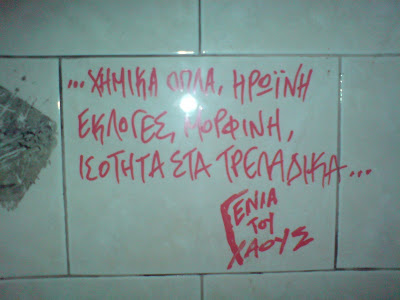 ...ΧΗΜΙΚΑ ΟΠΛΑ, ΗΡΩΪΝΗ
ΕΚΛΟΓΕΣ, ΜΟΡΦΙΝΗ,
ΙΣΟΤΗΤΑ ΣΤΑ ΤΡΕΛΑΔΙΚΑ...
ΓΕΝΙΑ
ΤΟΥ
ΧΑΟΥΣ